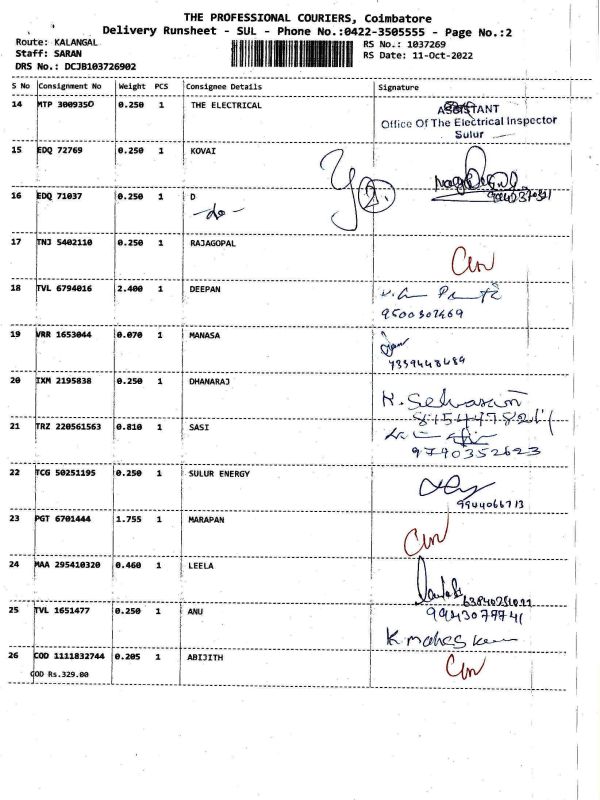 THE PROFESSIONAL COURIERS, Coimbatore
Delivery Runsheet - SUL - Phone No.:0422-3505555 - Page No.:2
Route: KALANGAL
RS No.: 1037269
Staff: SARAN
RS Date: 11-Oct-2022
DRS No.: DCJB103726902
S No Consignment No Weight PCS Consignee Details Signature
14 MTP 3009350 0.250 1 THE ELECTRICAL
ASSISTANT
Office Of The Electrical Inspector
Sulur
15 EDQ 72769 0.250 1 KOVAI
16 EDQ 71037 0.250 1 D
-do-
17 TNJ 5402110 0.250 1 RAJAGOPAL
18 TVL 6794016 2.400 1 DEEPAN
9500307469
19 VRR 1653044 0.070 1 MANASA
20 IXM 2195838 0.250 1 DHANARAJ
21 TRZ 220561563 0.810 1 SASI
9790352623
22 TCG 50251195 0.250 1 SULUR ENERGY
9944066713
23 PGT 6701444 1.755 1 MARAPAN
24 MAA 295410320 0.460 1 LEELA
25 TVL 1651477 0.250 1 ANU
9943079741
26 COD 1111832744 0.205 1 ABIJITH
COD Rs.329.00